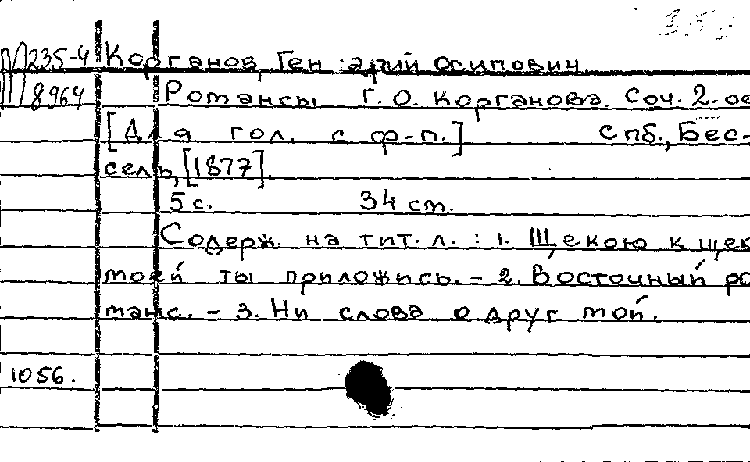 235-4 Корганов, Геннарий Осипович
8964 Романсы Г. О. Корганова. Соч. 2-ое
[Для гол. с ф-п.] Спб., Бес-
сель, [1877].
5 с. 34 см.
Содерж. на тит. л.: 1. Щекою к щек
моей ты приложись. – 2. Восточный ро
манс. – 3. Ни слова о друг мой.
1056.